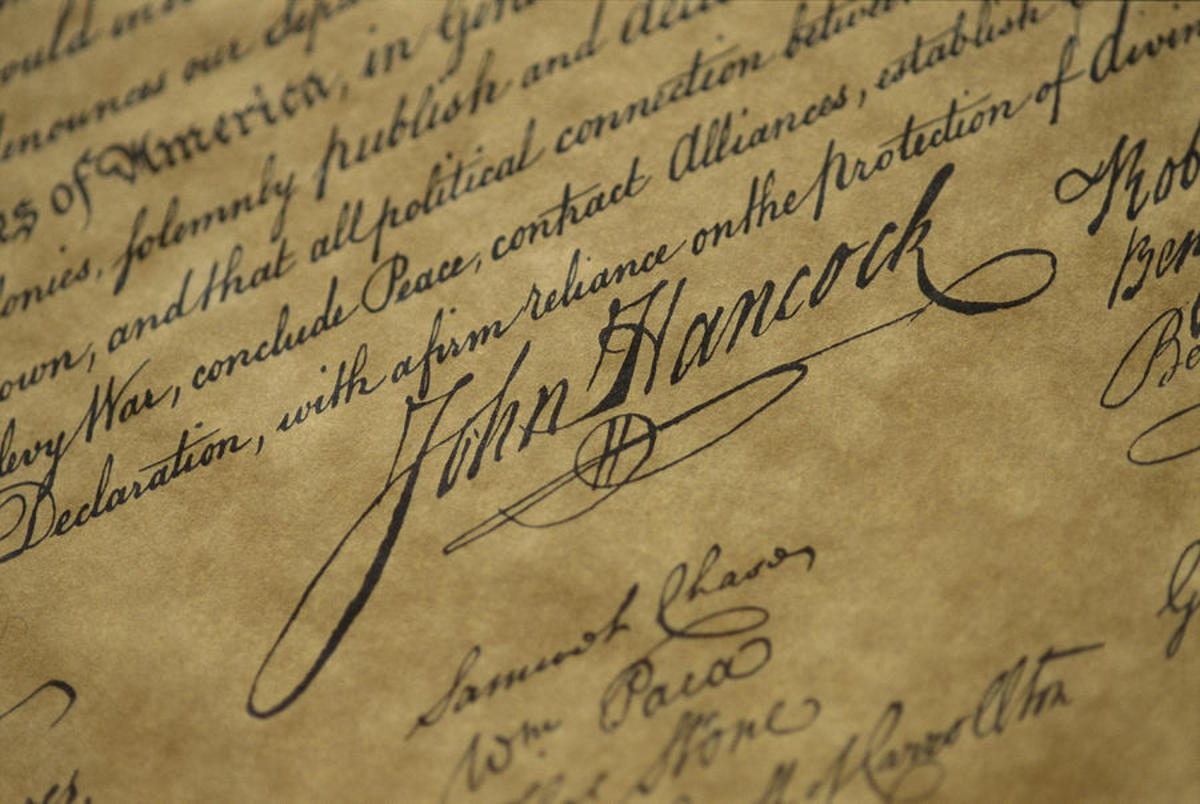 our Sepa
nounces our Sepa
rs of America, in Gen
lonies, solemnly publish and decl
own, and that all political connection betwe
levy War, conclude Peace, contract Alliances, establish
Declaration, with a firm reliance on the protection of divin
John Hancock
Rob
Ben
Be
Samuel Chase
Wm Paca
Stone
of Carrollton